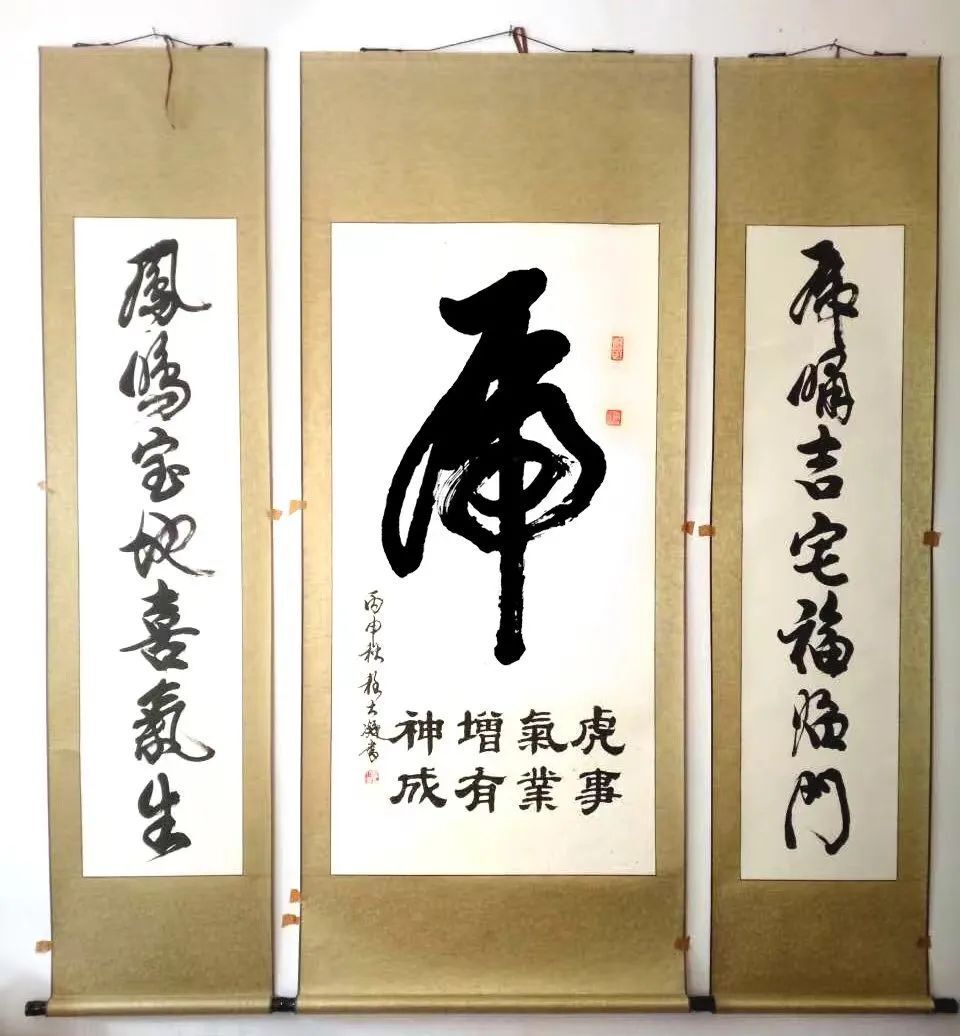 虎嘯吉宅福臨門
虎
虎氣增神
事業有成
丙申秋 大 書
鳳鳴宝地喜氣生